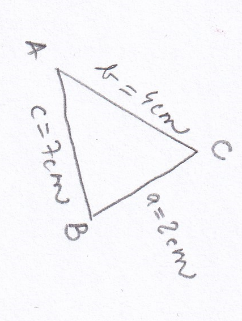 A
b = 4cm
C
c = 7cm
B
a = 2cm